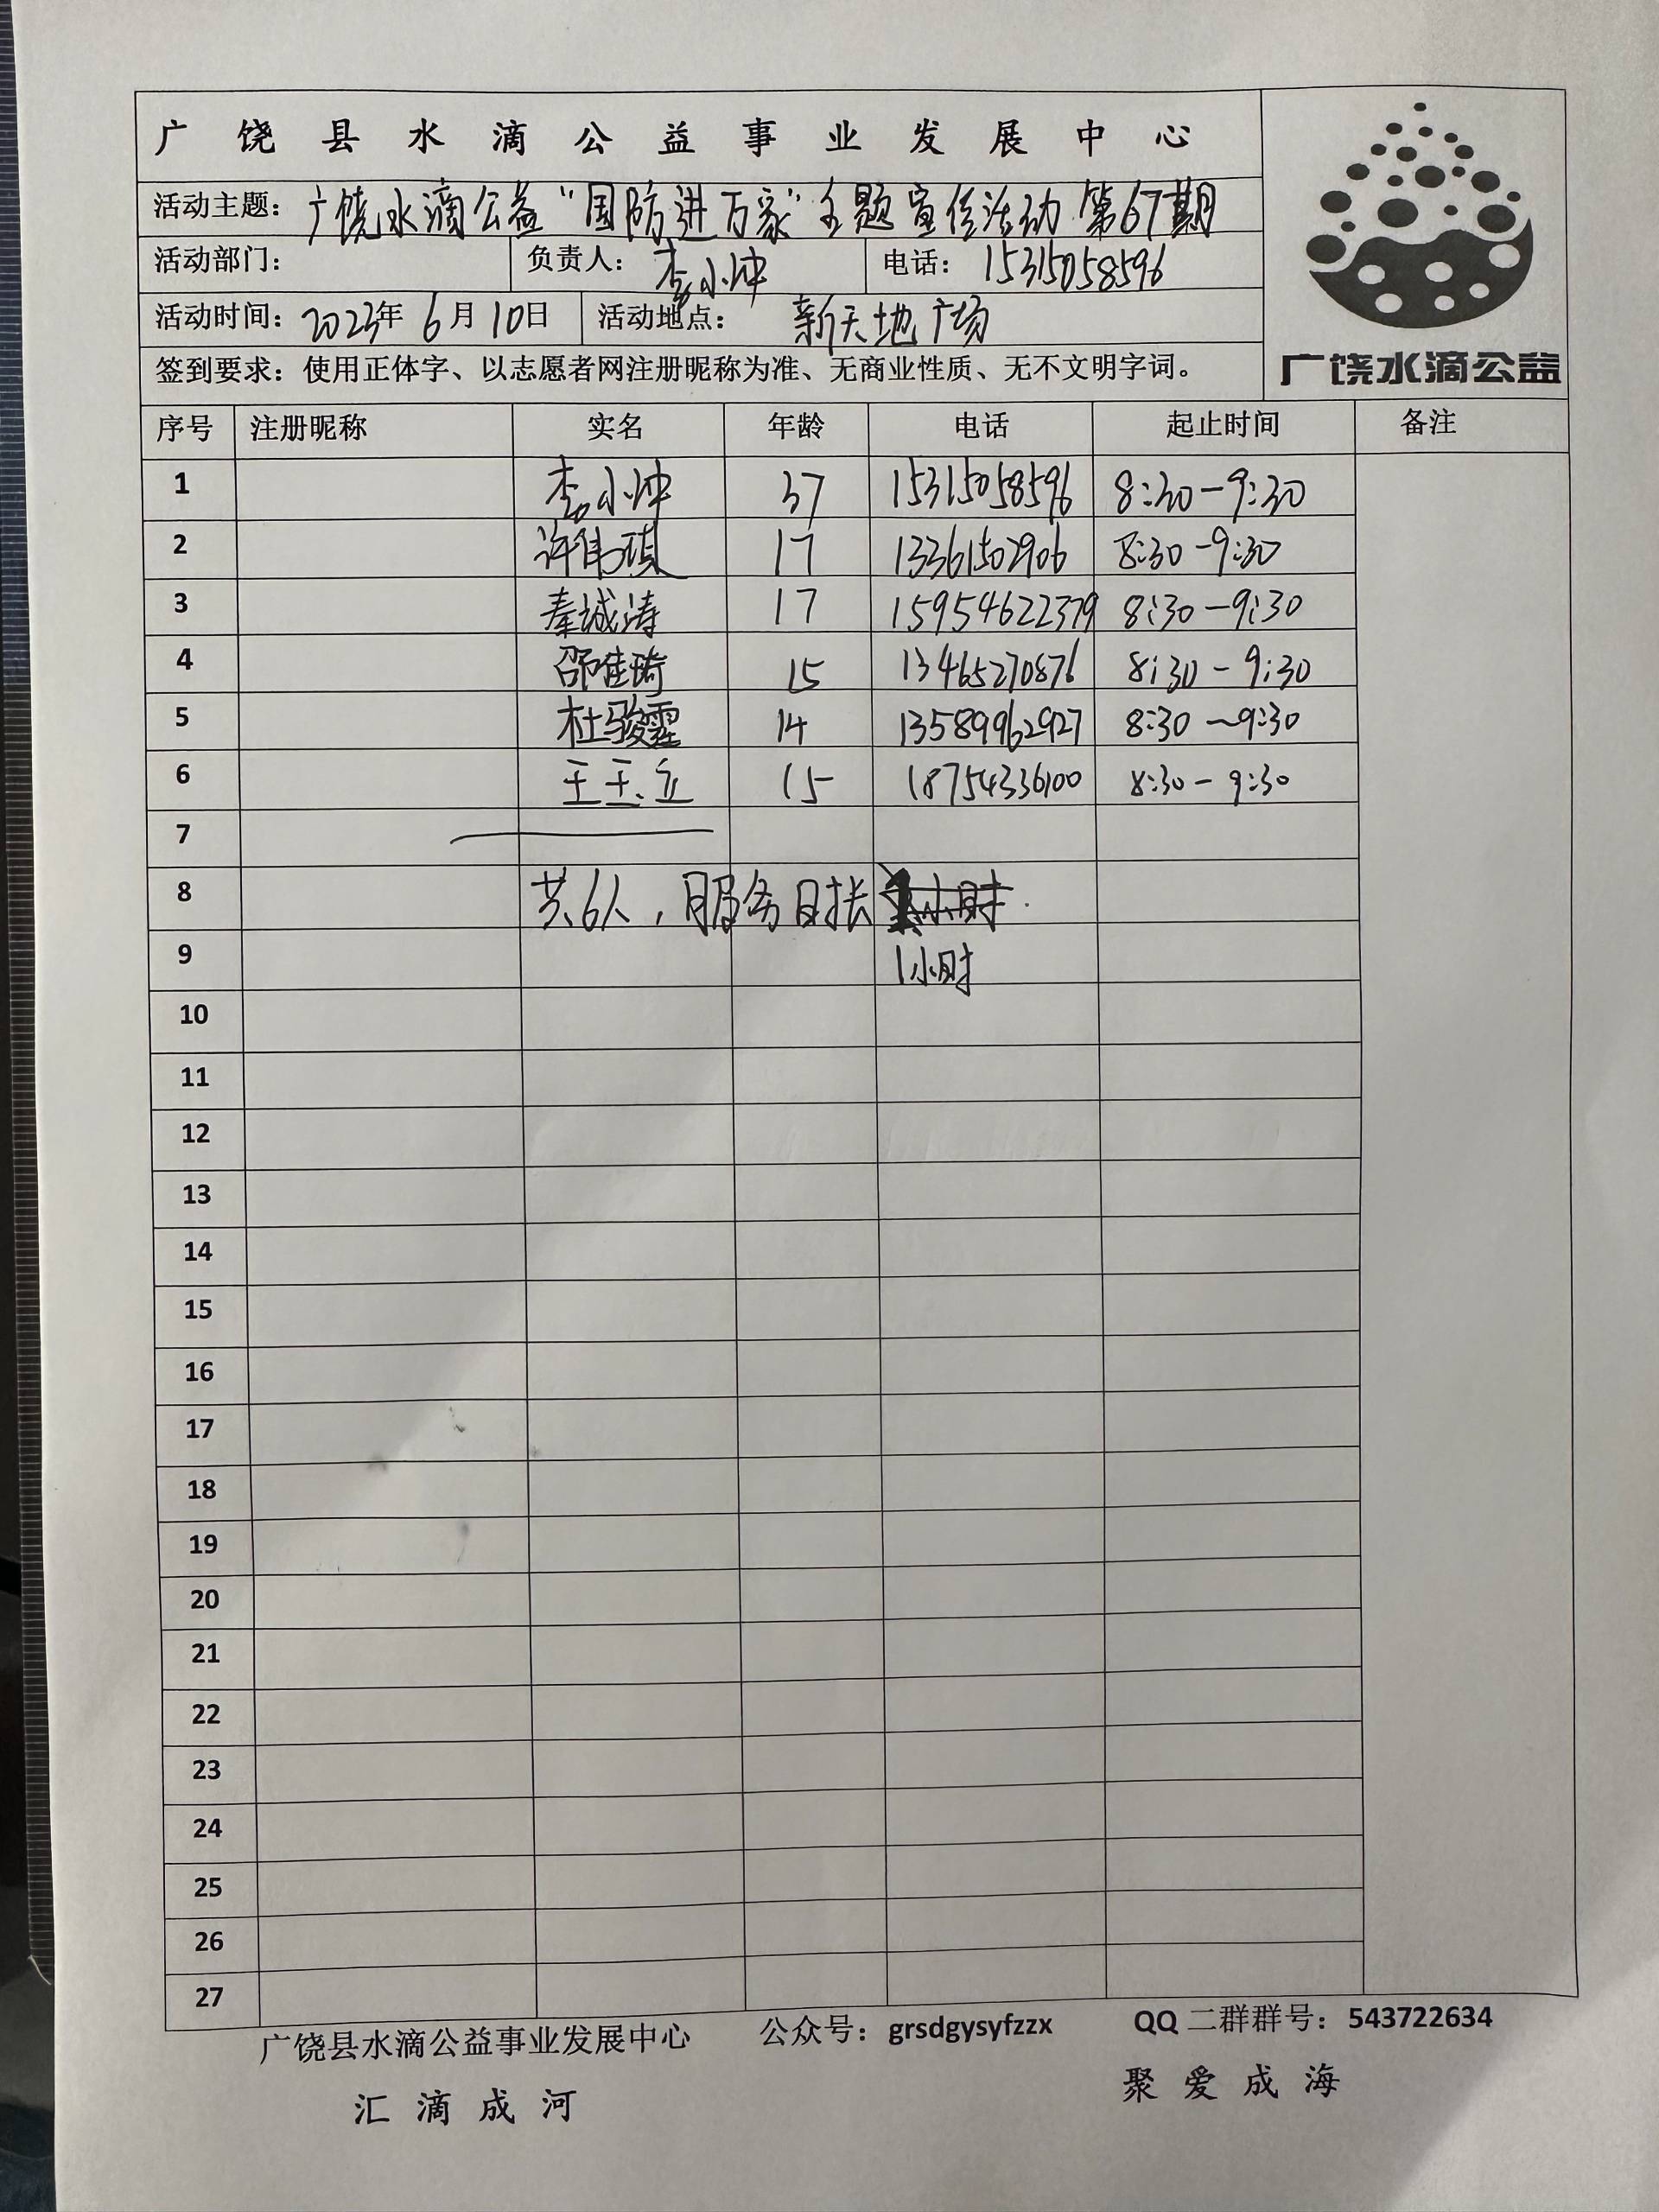 广饶县水滴公益事业发展中心
活动主题：广饶水滴公益“国防进万家”主题宣传活动 第67期
活动部门： 负责人：李小坤 电话：15315058596
活动时间：2023年6月10日 活动地点：新天地广场
签到要求：使用正体字、以志愿者网注册昵称为准、无商业性质、无不文明字词。
广饶水滴公益
序号 注册昵称 实名 年龄 电话 起止时间 备注
1 李小坤 37 15315058596 8:30-9:30
2 许伟琪 17 13361502906 8:30-9:30
3 秦城涛 17 15954622379 8:30-9:30
4 邵佳琦 15 13465270876 8:30-9:30
5 杜骏霆 14 13589962927 8:30~9:30
6 王玉立 15 18754336100 8:30-9:30
7
8 共6人，服务时长 小时.
9 1小时
10
11
12
13
14
15
16
17
18
19
20
21
22
23
24
25
26
27
广饶县水滴公益事业发展中心 公众号：grsdgysyfzzx QQ二群群号：543722634
汇滴成河 聚爱成海